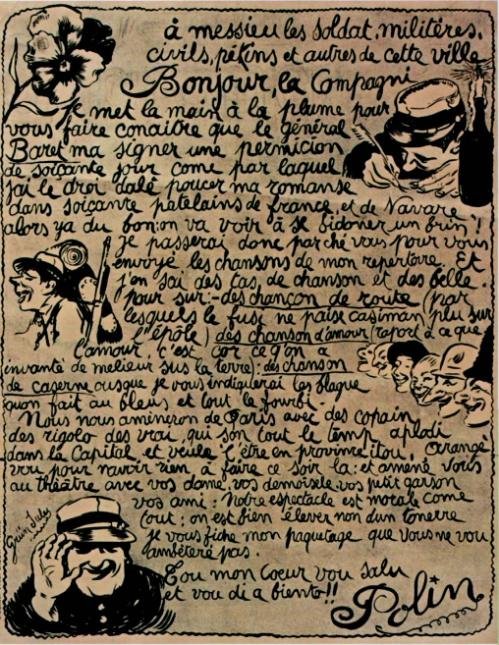 à messieu les soldat, militères,
civils, pékins et autres de cette ville
Bonjour, la Compagni
Je met la main à la plume pour
vous faire conaître que le général
Baret ma signer une permicion
de soiçante jour come par laquel
j'ai le droi d'alé poucer ma romanse
dans soiçante patelains de france, et de Navare
alors ya du bon; on va voir à se bidoner un brin!
je passerai donc par ché vous pour vous
envoyé les chansons de mon repertoire. Et
j'en sai des tas, de chanson et des belle.
pour sur:- des chançon de route (par
lesquels le fusi ne paise casiman plu sur
l'épôle) des chanson d'amour (raport à ce que
l'amour, c'est cor ce q'on a
invanté de melieur sus la terre): des chanson
de caserne ousque je vous indiquerai les blague
quon fait au bleus et tout le fourbi.
Nous nous amèneron de Paris avec des copain,
des rigolo des vrai, qui son tout le temp aplodi
dans la Capital, et veule l'être en province itou. Arrangé
vou pour navoir rien à faire ce soir là: et amené vous
au théâtre avec vos dame, vos demoisele, vos petit garson
vos ami: Notre espectacle est morale come
tout: on est bien élever non dun tonerre
je vous fiche mon paquetage que vous ne vou
ambêteré pas.
Tou mon coeur vou salu
et vou di a biento!!
Polin
Grün Jules